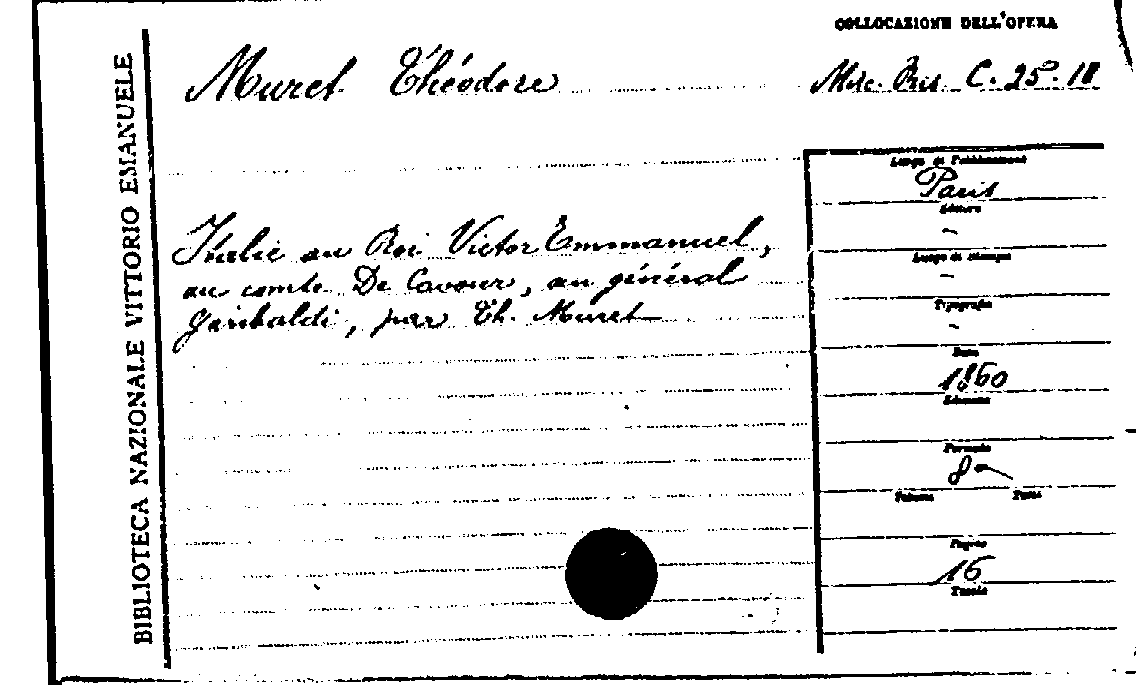 COLLOCAZIONE DELL'OPERA
Muret Théodore
Misc. Ris. C. 25. 18
BIBLIOTECA NAZIONALE VITTORIO EMANUELE
Luogo di Pubblicazione
Paris
Editore
-
Luogo di stampa
-
Tipografia
-
Data
1860
Edizione
Formato
8°
Volumi Parti
Pagine
16
Tavole
Italie au Roi Victor Emmanuel,
au comte De Cavour, au général
Garibaldi, par Th. Muret